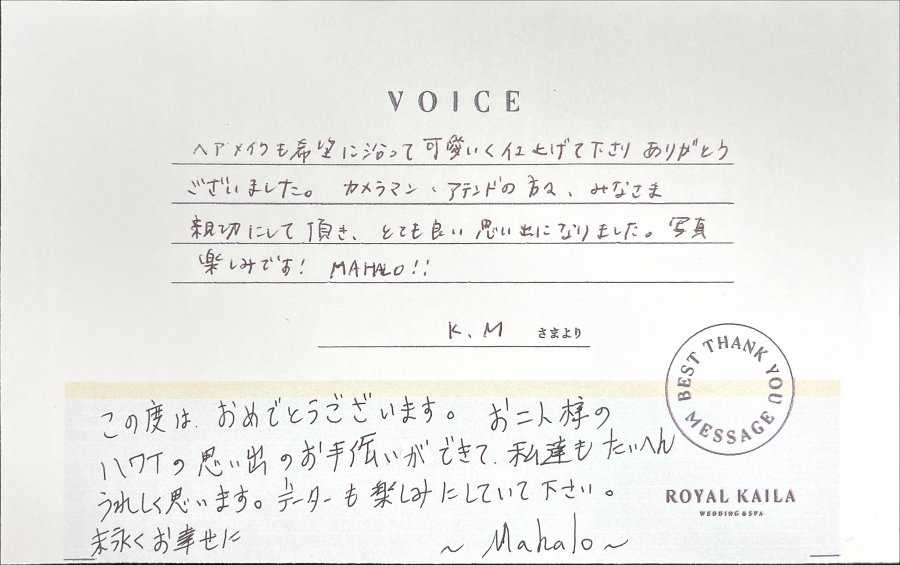 VOICE
ヘアメイクも希望に沿って可愛いく仕上げて下さり ありがとう
ございました。 カメラマン、アテンドの方々、みなさま
親切にして頂き、とても良い思い出になりました。写真
楽しみです! MAHALO!!
K.M さまより
BEST THANK YOU MESSAGE
この度は、おめでとうございます。 お二人様の
ハワイの思い出のお手伝いができて、私達もたいへん
うれしく思います。データーも楽しみにしていて下さい。
末永くお幸せに
~ Mahalo ~
ROYAL KAILA
WEDDING & SPA